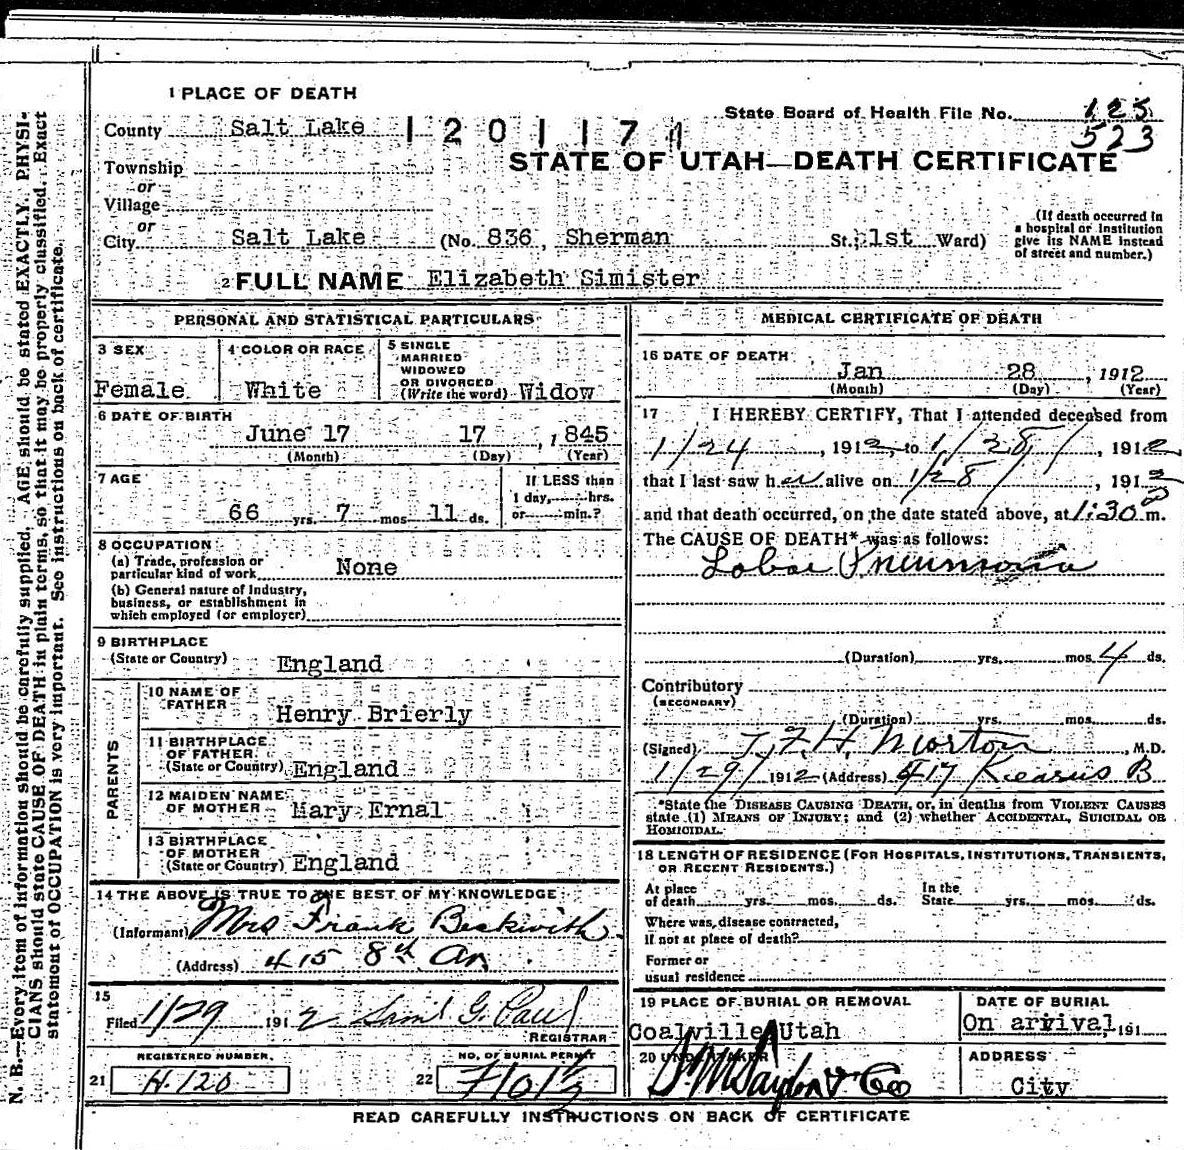 1 PLACE OF DEATH
State Board of Health File No. 125
523
County Salt Lake 1201174
STATE OF UTAH—DEATH CERTIFICATE
Township
or
Village
or
City Salt Lake (No. 836, Sherman St.; 1st Ward)
(If death occurred in
a hospital or institution
give its NAME instead
of street and number.)
2 FULL NAME Elizabeth Simister
PERSONAL AND STATISTICAL PARTICULARS
3 SEX
Female
4 COLOR OR RACE
White
5 SINGLE
MARRIED
WIDOWED
OR DIVORCED
(Write the word) Widow
6 DATE OF BIRTH
June 17 17, 1845
(Month) (Day) (Year)
7 AGE
66 yrs. 7 mos. 11 ds.
If LESS than
1 day, hrs.
or min.?
8 OCCUPATION
(a) Trade, profession or
particular kind of work None
(b) General nature of Industry,
business, or establishment in
which employed (or employer)
9 BIRTHPLACE
(State or Country) England
PARENTS
10 NAME OF
FATHER
Henry Brierly
11 BIRTHPLACE
OF FATHER
(State or Country) England
12 MAIDEN NAME
OF MOTHER Mary Ernal
13 BIRTHPLACE
OF MOTHER
(State or Country) England
14 THE ABOVE IS TRUE TO THE BEST OF MY KNOWLEDGE
(Informant) Mrs Frank Beckwith
(Address) 415 8th Av
15
Filed 1/29 1912 Saml G. Paul
REGISTRAR
REGISTERED NUMBER.
21 H.120
NO. OF BURIAL PERMIT
22
MEDICAL CERTIFICATE OF DEATH
16 DATE OF DEATH
Jan 28, 1912
(Month) (Day) (Year)
17 I HEREBY CERTIFY, That I attended deceased from
1/24, 1912, to 1/28/, 1912
that I last saw her alive on 1/28/, 1912
and that death occurred, on the date stated above, at 1:30 m.
The CAUSE OF DEATH* was as follows:
Lobar Pneumonia
(Duration) yrs. mos. 4 ds.
Contributory
(SECONDARY)
(Duration) yrs. mos. ds.
(Signed) T. F. H. Morton, M.D.
1/29/ 1912 (Address) 417 Kearns B
*State the DISEASE CAUSING DEATH, or, in deaths from VIOLENT CAUSES
state (1) MEANS OF INJURY; and (2) whether ACCIDENTAL, SUICIDAL OR
HOMICIDAL.
18 LENGTH OF RESIDENCE (FOR HOSPITALS, INSTITUTIONS, TRANSIENTS,
OR RECENT RESIDENTS.)
At place
of death yrs. mos. ds.
In the
State yrs. mos. ds.
Where was disease contracted,
if not at place of death?
Former or
usual residence
19 PLACE OF BURIAL OR REMOVAL
Coalville Utah
DATE OF BURIAL
On arrival, 191
20 UNDERTAKER
ADDRESS
City
READ CAREFULLY INSTRUCTIONS ON BACK OF CERTIFICATE
N. B.—Every item of information should be carefully supplied. AGE should be stated EXACTLY. PHYSI-
CIANS should state CAUSE OF DEATH in plain terms, so that it may be properly classified. Exact
statement of OCCUPATION is very important. See instructions on back of certificate.